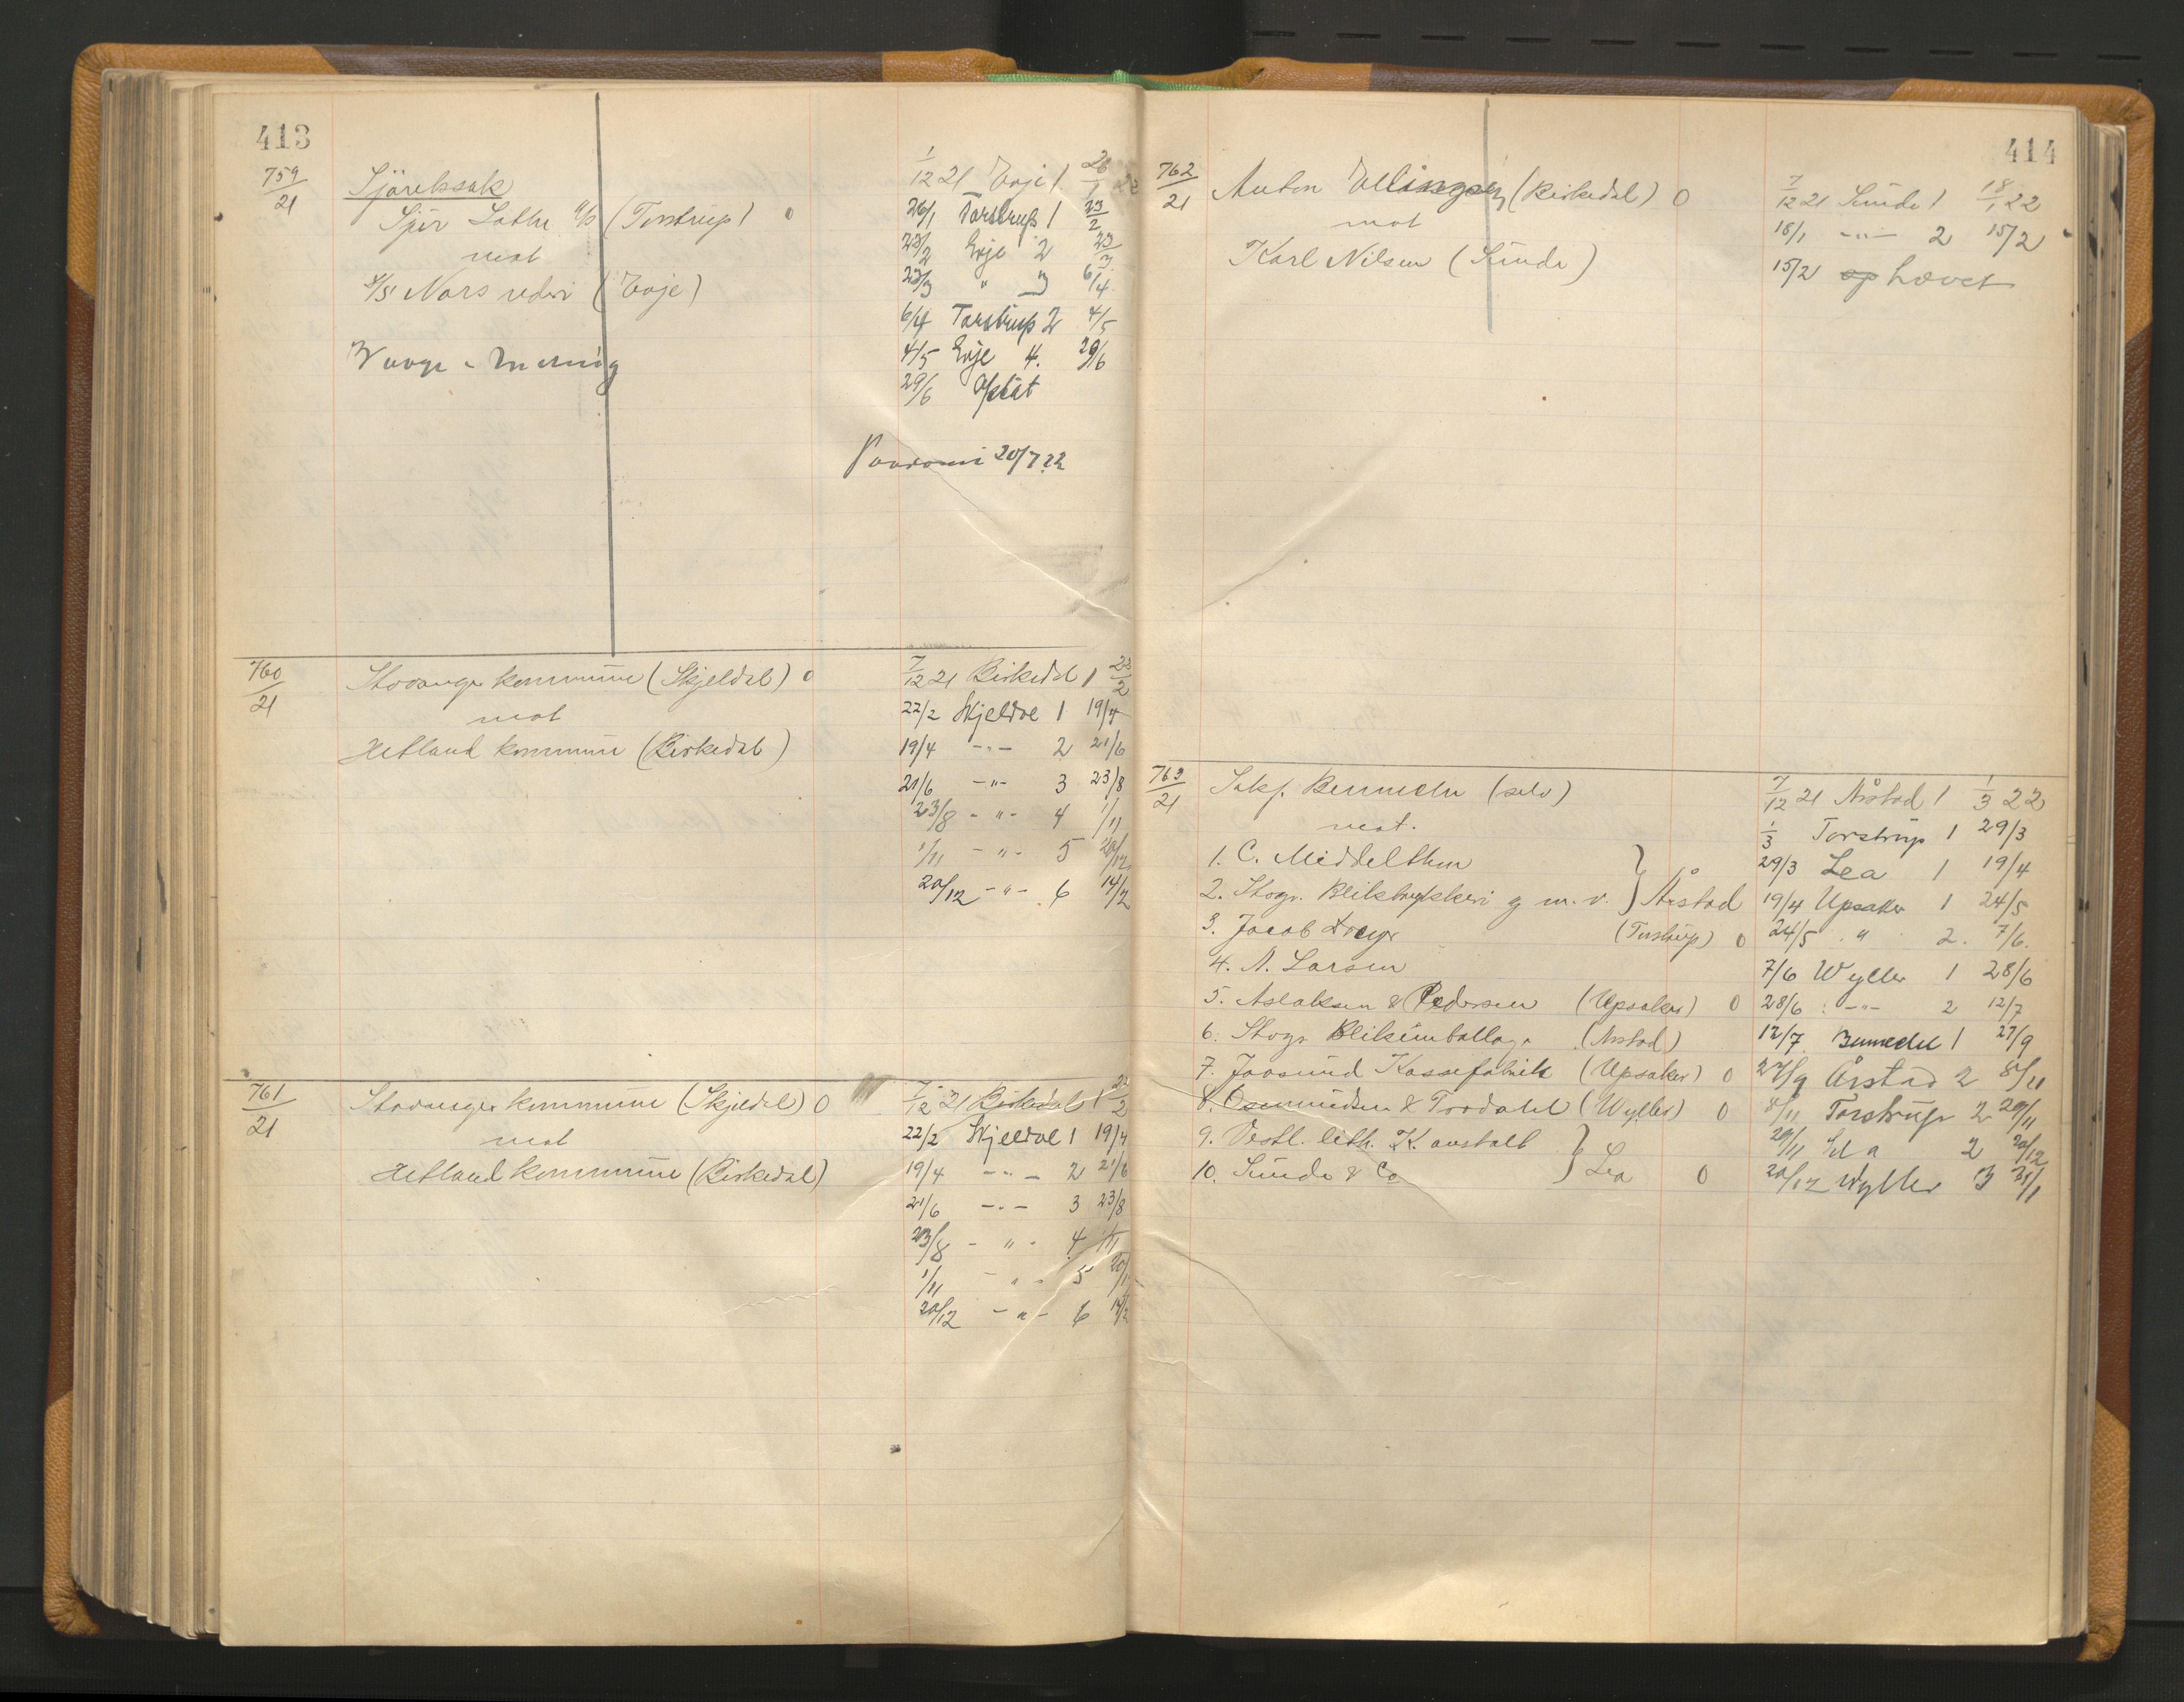 413
759/21 Sjöretssak
Spir Lothe a/s (Torstrup) 0
mot
a/s Nors rederi (Eoje)
1/12 21 Eoje 1 26/1 22
26/1 Torstrup 1 23/2
23/2 Eoje 2 23/3
23/3 " 3 6/4
6/4 Torstrup 2 4/5
4/5 Eoje 4. 29/6
29/6 Opsat
20/7 22
760/21 Stavanger kommune (Skjeldal) 0
mot
Hetland kommune (Birkedal)
7/12 21 Birkedal 1 22/2
22/2 Skjeldal 1 19/4
19/4 -"- 2 21/6
21/6 -"- 3 23/8
23/8 -"- 4 1/11
1/11 -"- 5 20/12
20/12 -"- 6 14/2
761/21 Stavanger kommune (Skjeldal) 0
mot
Hetland kommune (Birkedal)
7/12 21 Birkedal 1 22/2
22/2 Skjeldal 1 19/4
19/4 -"- 2 21/6
21/6 -"- 3 23/8
23/8 -"- 4 1/11
1/11 -"- 5 20/1
20/12 -"- 6 14/2
414
762/21 Anton Ellingsen (Birkedal) 0
mot
Karl Nilsen (Sunde)
7/12 21 Sunde 1 18/1 22
18/1 -"- 2 15/2
15/2 ophævet
763/21 Sakf. Bennechr (selv)
mot.
1. C. Middelthon
2. Stvgr. Bliktrykkeri g m. v. } Årstad
3. Jacob Dreyer (Torstrup) 0
4. A. Larsen
5. Aslaksen & Pedersen (Upsaker) 0
6. Stvgr Blikemballage (Årstad)
7. Jøssund Kassefabrik (Upsaker) 0
8. Osmundsen & Trodahl (Wyller) 0
9. Vestl. lith. K. anstalt
10. Sunde & Co } Lea 0
7/12 21 Årstad 1 1/3 22
1/3 Torstrup 1 29/3
29/3 Lea 1 19/4
19/4 Upsaker 1 24/5
24/5 " 2. 7/6.
7/6 Wyller 1 28/6
28/6 -"- 2 12/7
12/7 1 27/9
27/9 Årstad 2 8/11
8/11 Torstrup 2 29/11
29/11 Lea 2 20/12
20/12 Wyller 3 31/1